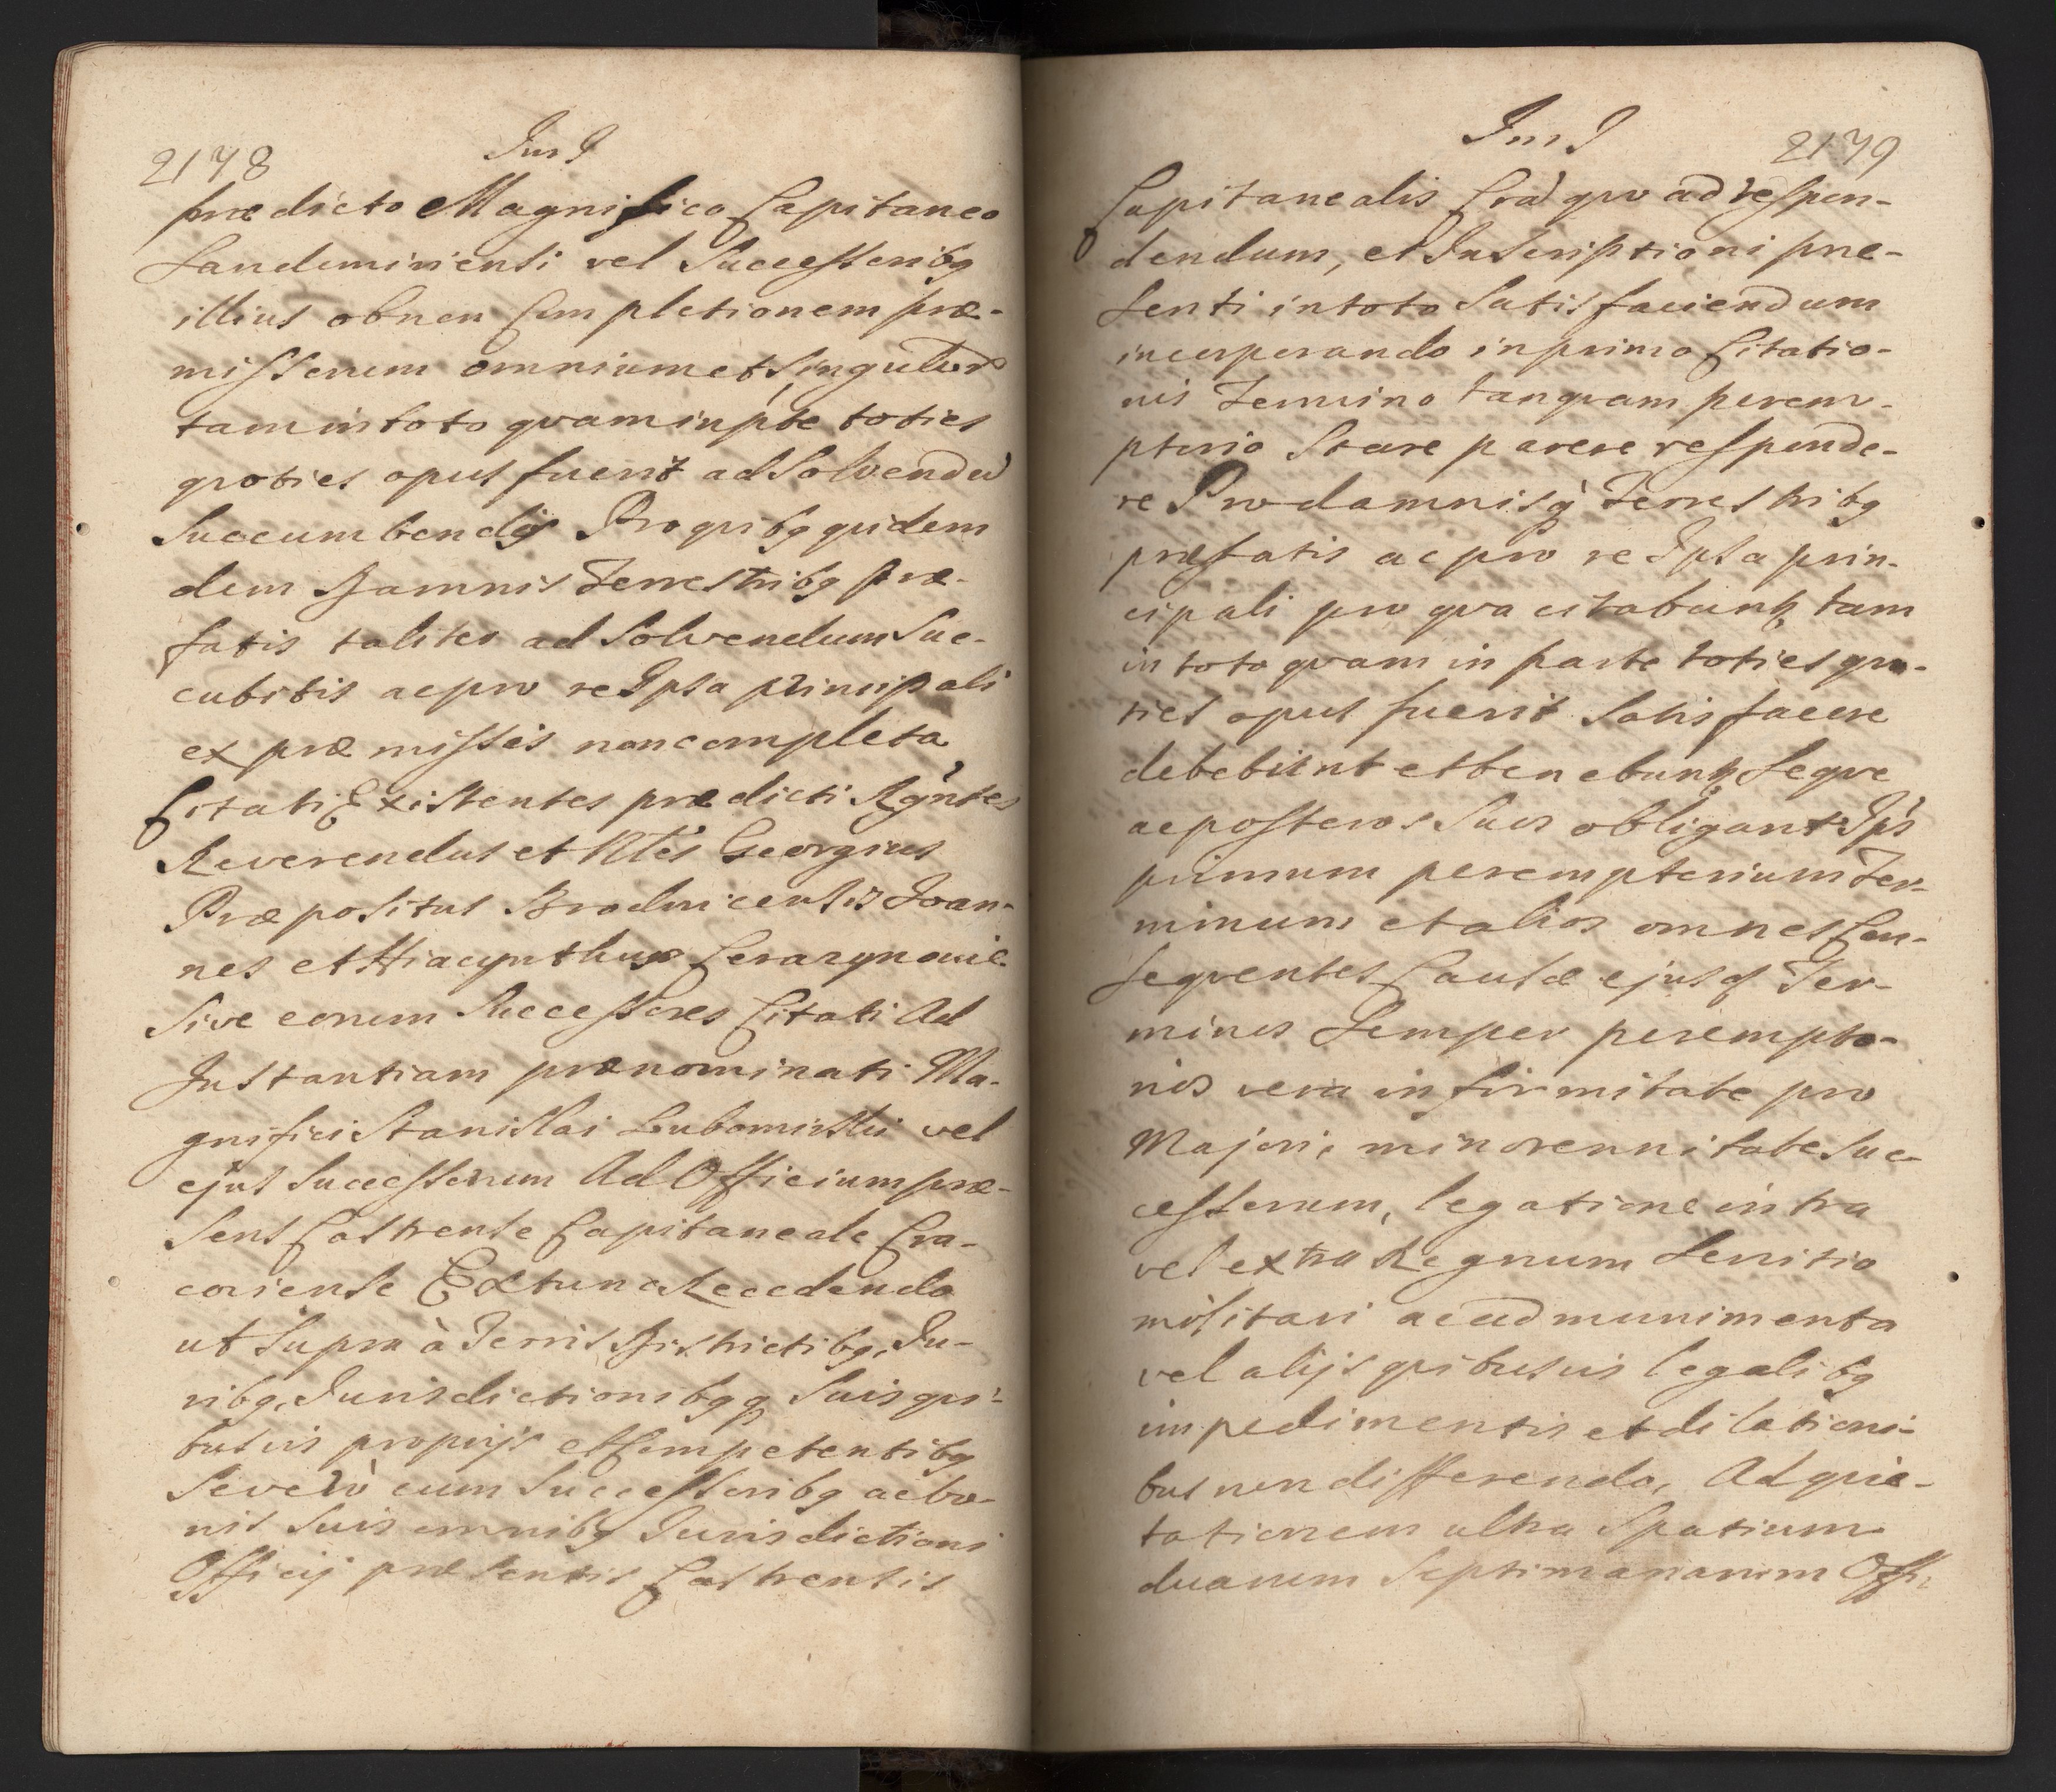 2178
Jus J
prædicto Magnifico Capitaneo
Sandomiriensi vel Successoribq
illius ob non Completionem præ-
missorum omnium et Singulorũ
tam in toto qvam in pte toties
qvoties opus fuerit ad Solvendũ
Succumbendis Pro qvibq qvidem
dem Damnis Terrestribq præ-
fatis taliter ad Solvendum Suc-
cubitis ac pro re Ipsa principali
ex præmissis non completa
Citati Existentes prædicti Rgñtes
Reverendus et Nlis Georgius
Præpositus Brodnicensis Joan-
nes et Hiacynthus
Sive eorum Successores Citati Ad
Instantiam prænominati Ma-
gnifici Stanislai Lubomirski vel
ejus Successorum Ad Officium præ-
sens Castrense Capitaneale Cra-
coviense Extunc Recedendo
ut Supra à Terris Districtibq, Ju-
ribq, Jurisdictionibq q Suis qvi-
busvis proprijs et Competentibq
Se verò cum Successoribq ac bo-
nis Suis omnibq Jurisdictioni
Officij præsentis Castrensis
2179
Jus J
Capitanealis Crac̃ qvo ad respon-
dendum, et Inscriptioni præ-
senti in toto Satisfaciendum
incorporando in primo Citatio-
nis Termino tanqvam perem-
ptorio Stare parere responde-
re Pro damnisq Terrestribq
præfatis ac pro re Ipsa prin-
cipali pro qva citabunt, tam
in toto qvam in parte toties qvo-
ties opus fuerit Satisfacere
debebunt et tenebunt, Seqve
ac posteros Suos obligant Ips
primum peremptorium Ter-
minum et alios omnes Con-
seqventes Causæ ejusq Ter-
minos Semper perempto-
rios vera infirmitate pro
Majori, minorennitate Suc-
cessorum, legatione intra
vel extra Regnum Servitio
militari ac ad munimenta
vel alijs qvibusvis legalibq
impedimentis et dilationi-
bus non differendo, Ad qvie-
tationem ultra Spatium
duarum Septimanarum Offi: